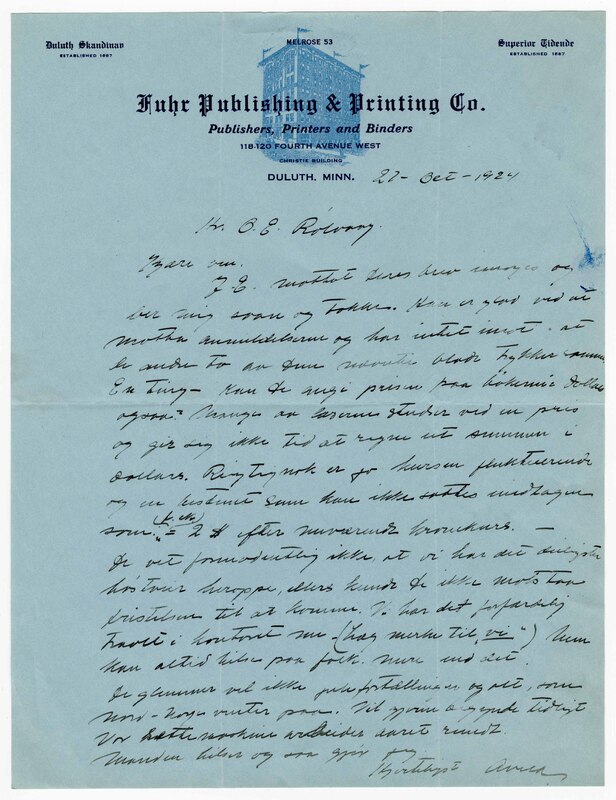 Duluth Skandinav
ESTABLISHED 1887
MELROSE 53
Superior Tidende
ESTABLISHED 1887
Fuhr Publishing & Printing Co.
Publishers, Printers and Binders
118-120 FOURTH AVENUE WEST
CHRISTIE BUILDING
DULUTH, MINN. 22- Oct - 1924
Hr. O. E. Rölvaag.
Kjære ven.
J. E. mottat Deres brev imorges og
ber mig saa og takke. Han er glad ved at
motta anmeldelserne og har intet imot at
de andre to av dem nævnte blade trykker samme
En ting - kan De angi prisen paa bökerne i dollars
ogsaa? Mange av læserne studser ved en pris
og gir sig ikke tid at regne ut summen i
dollars. Rigtignok er jo kursen fluktuerende
og en bestemt sum kan ikke sættes undtagen
som = 2 $ efter nuværende kronekurs. -
De vet formodentlig ikke, at vi har det deiligste
höstveir heroppe, ellers kunde De ikke motstaa
fristelsen til at komme. Vi har det forfærdelig
travlt i kontoret nu - (Læg merke til "vi") Men
kan altid hilse paa folk. mere end det.
De glemmer vel ikke julefortællingen og alt, som
Nord-Norge venter paa. Vil gjerne ha tidligst
Vor sættemaskine arbeider aaret rundt.
Manden hilser og saa gjør jeg
Hjerteligst